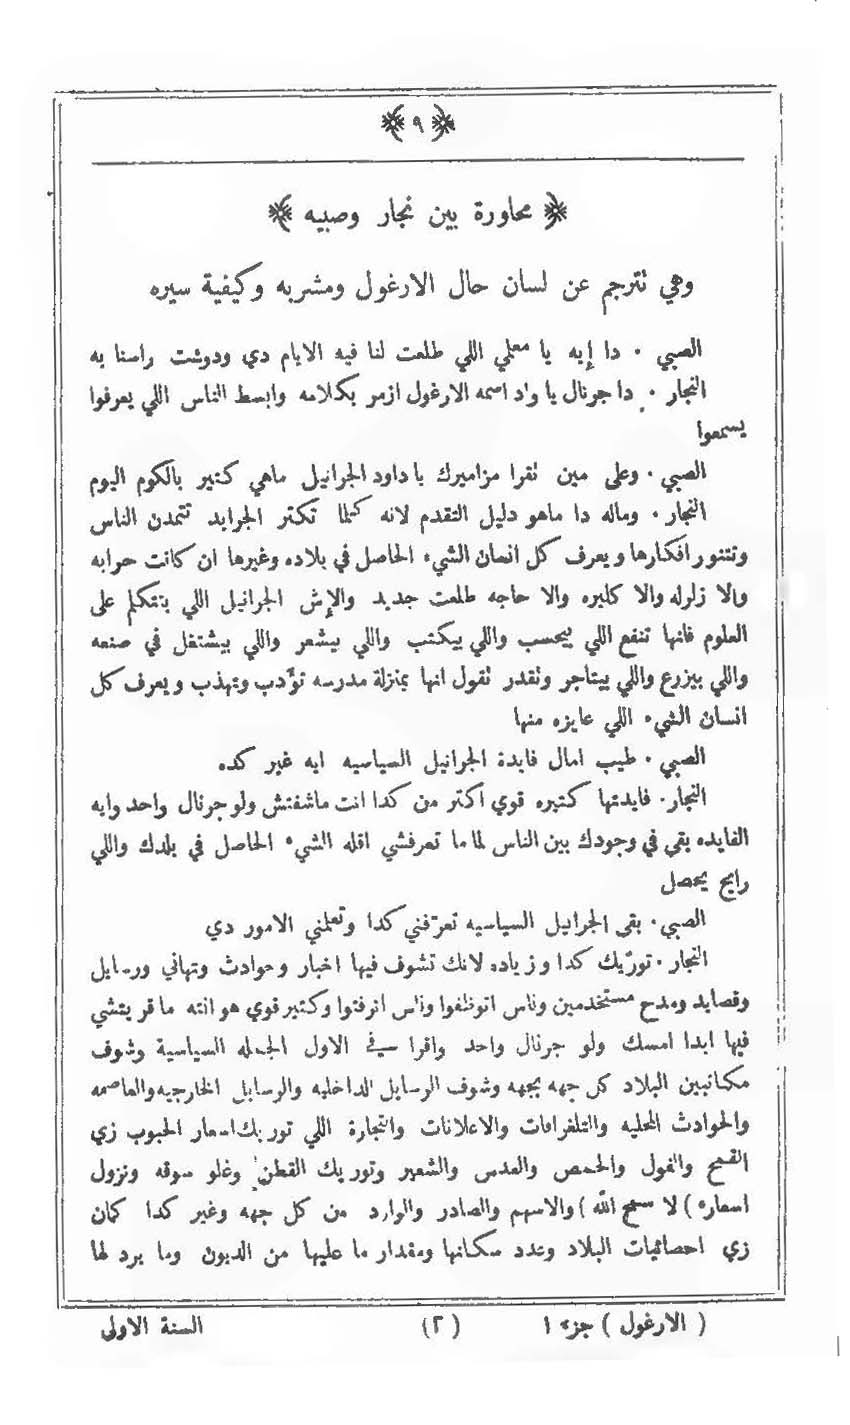 ﴿ ٩ ﴾
﴿ محاورة بين نجار وصبيه ﴾
وهي تترجم عن لسان حال الارغول ومشربه وكيفية سيره
الصبي . دا إيه يا معلمي اللي طلعت لنا فيه الايام دي ودوشت راسنا به
النجار . دا جرنال يا واد اسمه الارغول ازمر بكلامه وابسط الناس اللي يعرفوا
يسمعوا
الصبي . وعلى مين تقرا مزاميرك يا داود الجرانيل ماهي كتير بالكوم اليوم
النجار . وماله دا ماهو دليل التقدم لانه كلما تكتر الجرايد تتمدن الناس
وتتنور افكارها ويعرف كل انسان الشيء الحاصل في بلاده وغيرها ان كانت حرابه
والا زلزله والا كليره والا حاجه طلعت جديد والإش الجرانيل اللي بتتكلم على
العلوم فانها تنفع اللي يحسب واللي بيكتب واللي بيشعر واللي بيشتغل في صنعه
واللي بيزرع واللي بيتاجر وتقدر تقول انها بمنزلة مدرسه تؤدب وتهذب ويعرف كل
انسان الشيء اللي عايزه منها
الصبي . طيب امال فايدة الجرانيل السياسيه ايه غير كده
النجار . فايدتها كتيره قوي اكتر من كدا انت ماشفتش ولو جرنال واحد وايه
الفايده بقي في وجودك بين الناس لما ما تعرفشي اقله الشيء الحاصل في بلدك واللي
رايح يحصل
الصبي . بقى الجرانيل السياسيه تعرفني كدا وتعلمني الامور دي
النجار . توريك كدا وزياده لانك تشوف فيها اخبار وحوادث وتهاني ورسايل
وقصايد ومدح مستخدمين وناس اتوظفوا وناس انرفتوا وكتير قوي هو انته ما قريتشي
فيها ابدا امسك ولو جرنال واحد واقرا في الاول الجمله السياسية وشوف
مكاتبين البلاد كل جهه بجهه وشوف الرسايل الداخليه والرسايل الخارجيه والعاصمه
والحوادث المحليه والتلغرافات والاعلانات والتجارة اللي توريك اسعار الحبوب زي
القمح والفول والحمص والعدس والشعير وتوريك القطن وغلو سوقه ونزول
اسعاره ( لا سمح الله ) والاسهم والصادر والوارد من كل جهه وغير كدا كمان
زي احصائيات البلاد وعدد سكانها ومقدار ما عليها من الديون وما يرد لها
( الارغول ) جزء ١ (٢) السنة الاولى